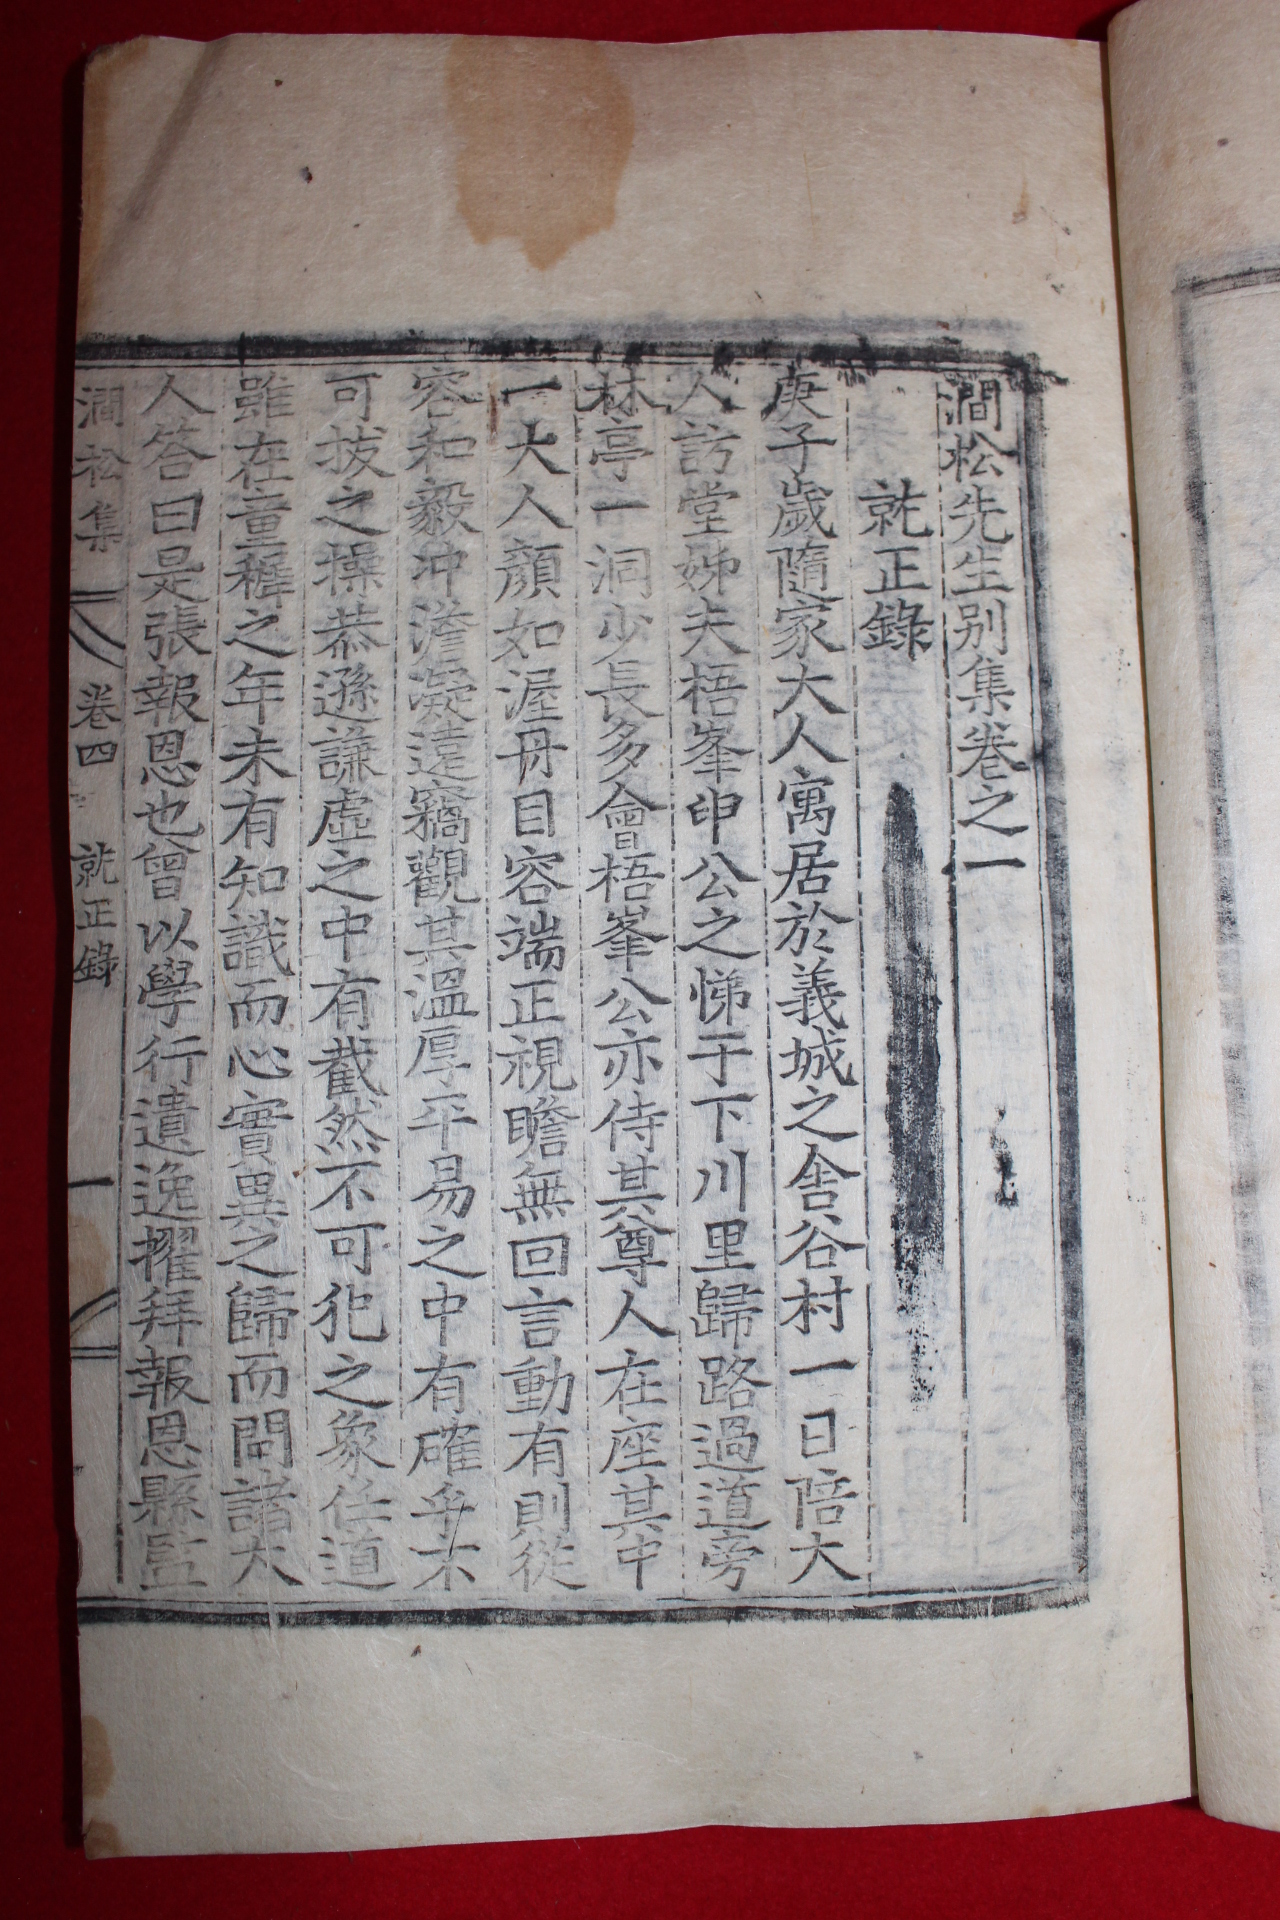 澗松先生別集卷之一
就正錄
庚子歲隨家大人寓居於義城之舍谷村一日陪大
人訪堂姊夫梧峯申公之悌于下川里歸路過道旁
林亭一洞少長多會梧峯公亦侍其尊人在座其中
一大人顏如渥丹目容端正視瞻無回言動有則從
容和毅冲澹凝遠竊觀其溫厚平易之中有確乎不
可拔之操恭遜謙虛之中有截然不可犯之象任道
雖在童穉之年未有知識而心實異之歸而問諸大
人答曰是張報恩也曾以學行遺逸擢拜報恩縣監
澗松集 卷四 就正錄 一